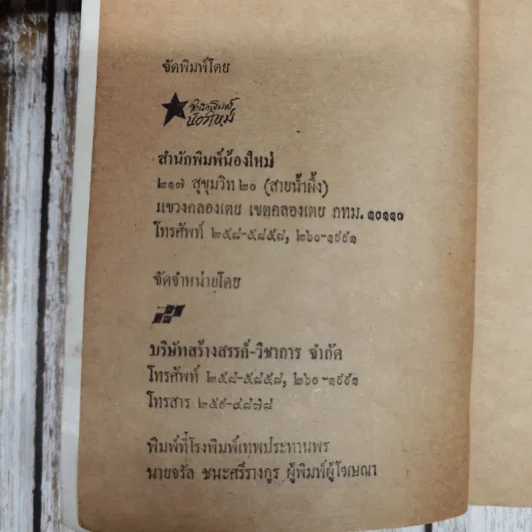 จัดพิมพ์โดย
สำนักพิมพ์
น้องใหม่
สำนักพิมพ์น้องใหม่
๒๑๗ สุขุมวิท ๒๐ (สายน้ำผึ้ง)
แขวงคลองเตย เขตคลองเตย กทม. ๑๐๑๑๐
โทรศัพท์ ๒๕๘-๕๘๕๘, ๒๖๐-๑๙๙๑
จัดจำหน่ายโดย
บริษัทสร้างสรรค์-วิชาการ จำกัด
โทรศัพท์ ๒๕๘-๕๘๕๘, ๒๖๐-๑๙๙๑
โทรสาร ๒๕๙-๔๘๗๘
พิมพ์ที่โรงพิมพ์เทพประทานพร
นายจรัล ชนะศรีรางกูร ผู้พิมพ์ผู้โฆษณา